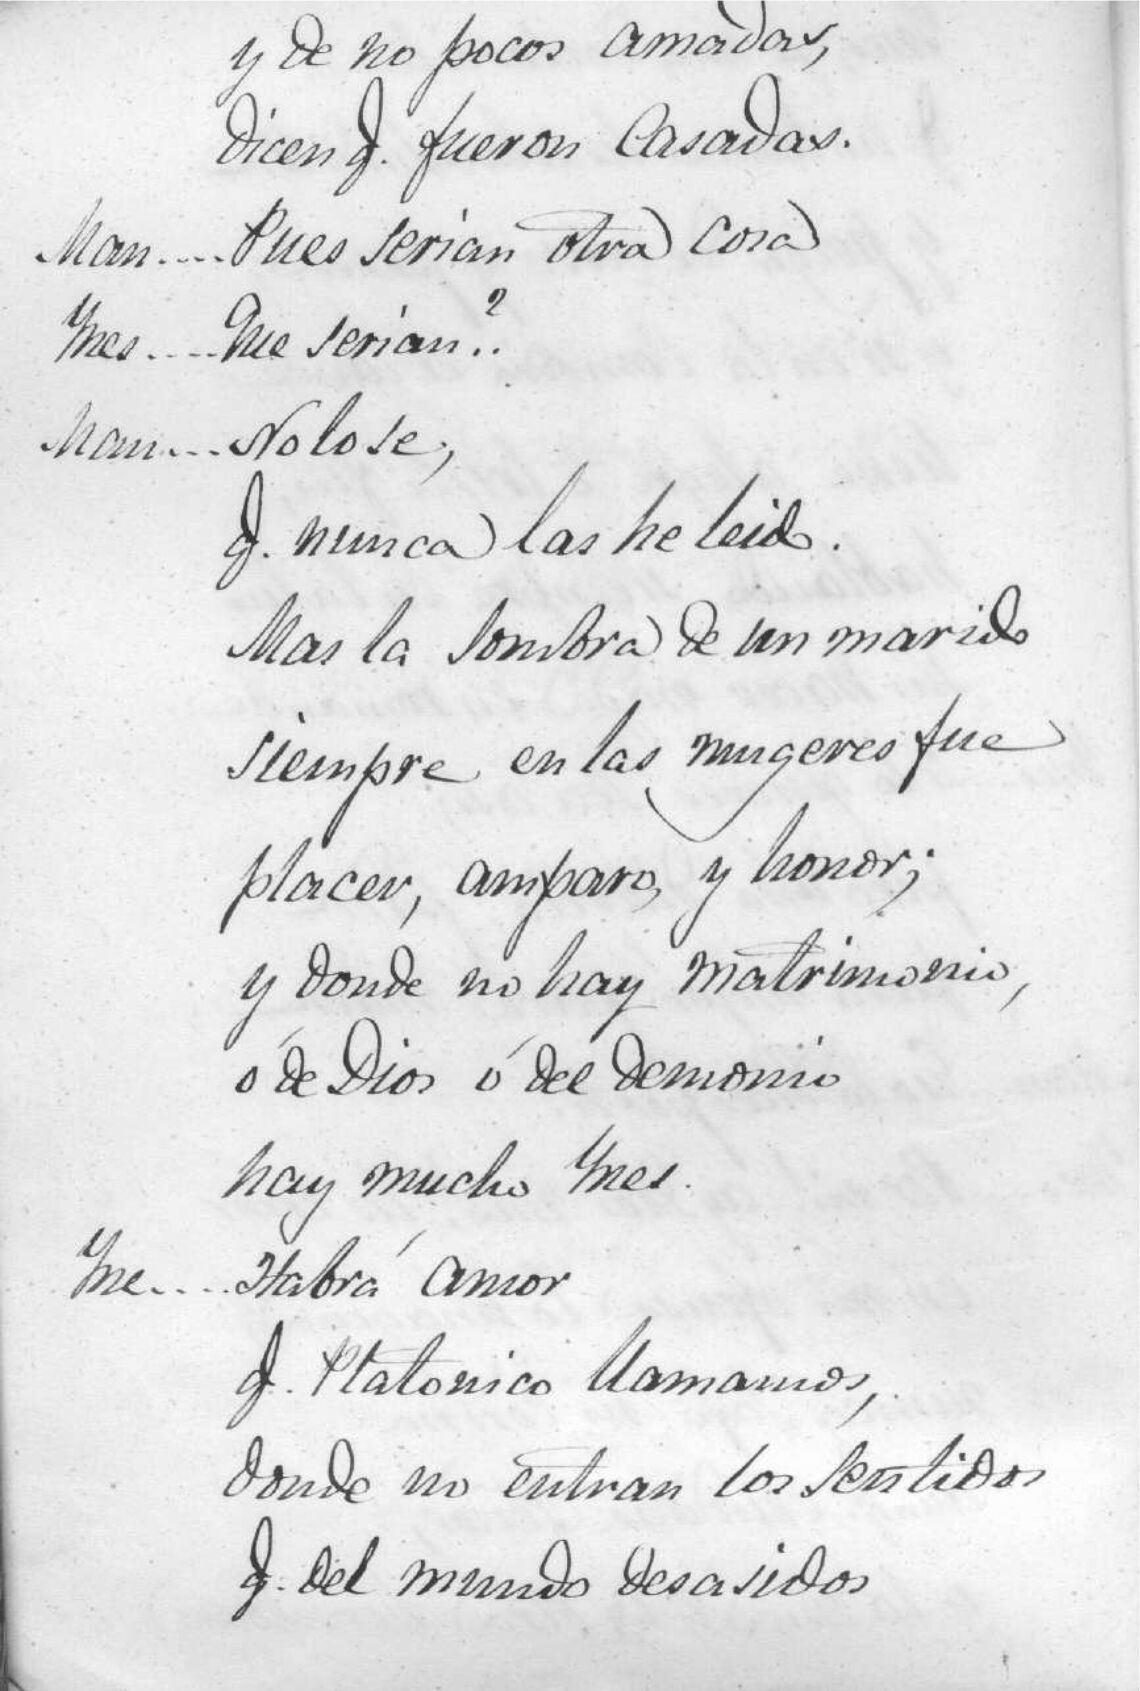 y de no pocos amadas,
dicen q. fueron Casadas.
Man.... Pues serian otra cosa
Ynes.... Que serian..?
Man.... No lo se,
q. nunca las he leido.
Mas la sombra de un marido
siempre en las mugeres fue
placer, amparo, y honor;
y donde no hay matrimonio,
ó de Dios ó del demonio
hay mucho Ynes.
Yne.... Habrá amor
q. Platonico llamamos,
donde no entran los sentidos
q. del mundo desasidos